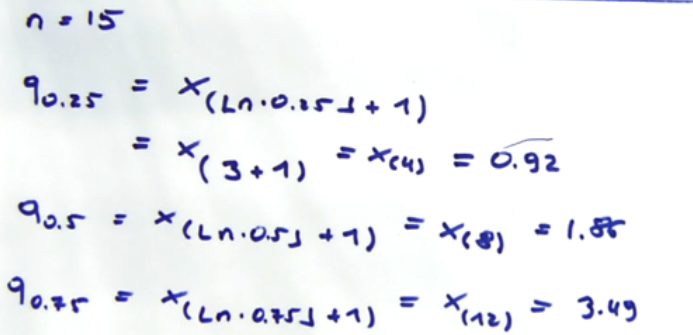 n = 15
q0.25 = x(⌊n·0.25⌋ + 1)
= x(3+1) = x(4) = 0.92
q0.5 = x(⌊n·0.5⌋ + 1) = x(8) = 1.
q0.75 = x(⌊n·0.75⌋ + 1) = x(12) = 3.49